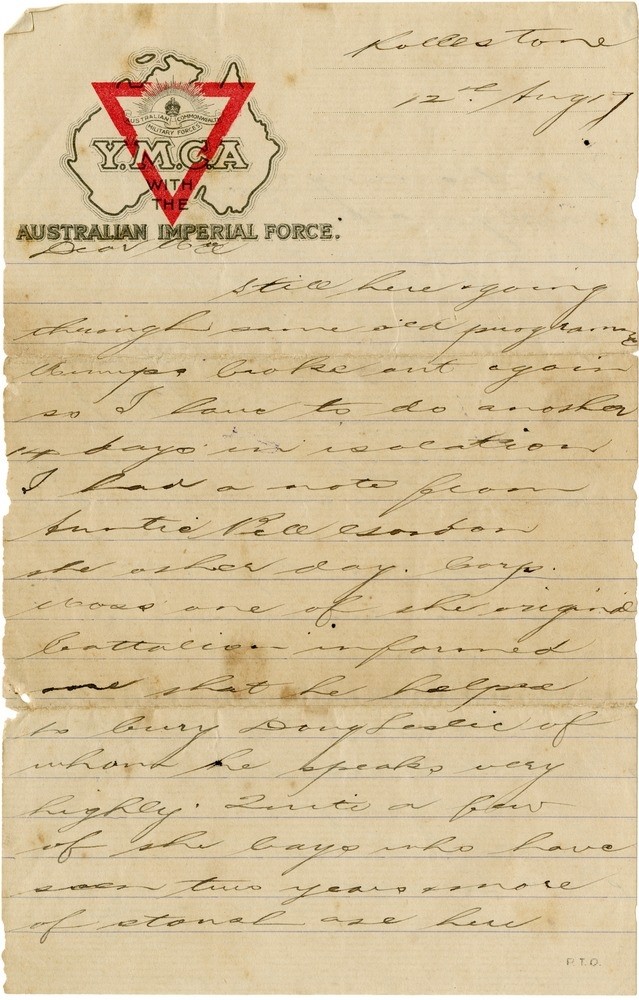 Rollestone
12th Aug 17
AUSTRALIAN COMMONWEALTH
MILITARY FORCES
Y.M.C.A
WITH
THE
AUSTRALIAN IMPERIAL FORCE.
Dear
Still here & going
through same old programme
Mumps broke out again
so I have to do another
14 days in isolation
I had a note from
Auntie Bell
the other day. Corp.
Moss one of the original
battalion informed
me that he helped
to bury Doug Leslie of
whom he speaks very
highly. Quite a few
of the boys who have
seen two years & more
of are here
P.T.O.